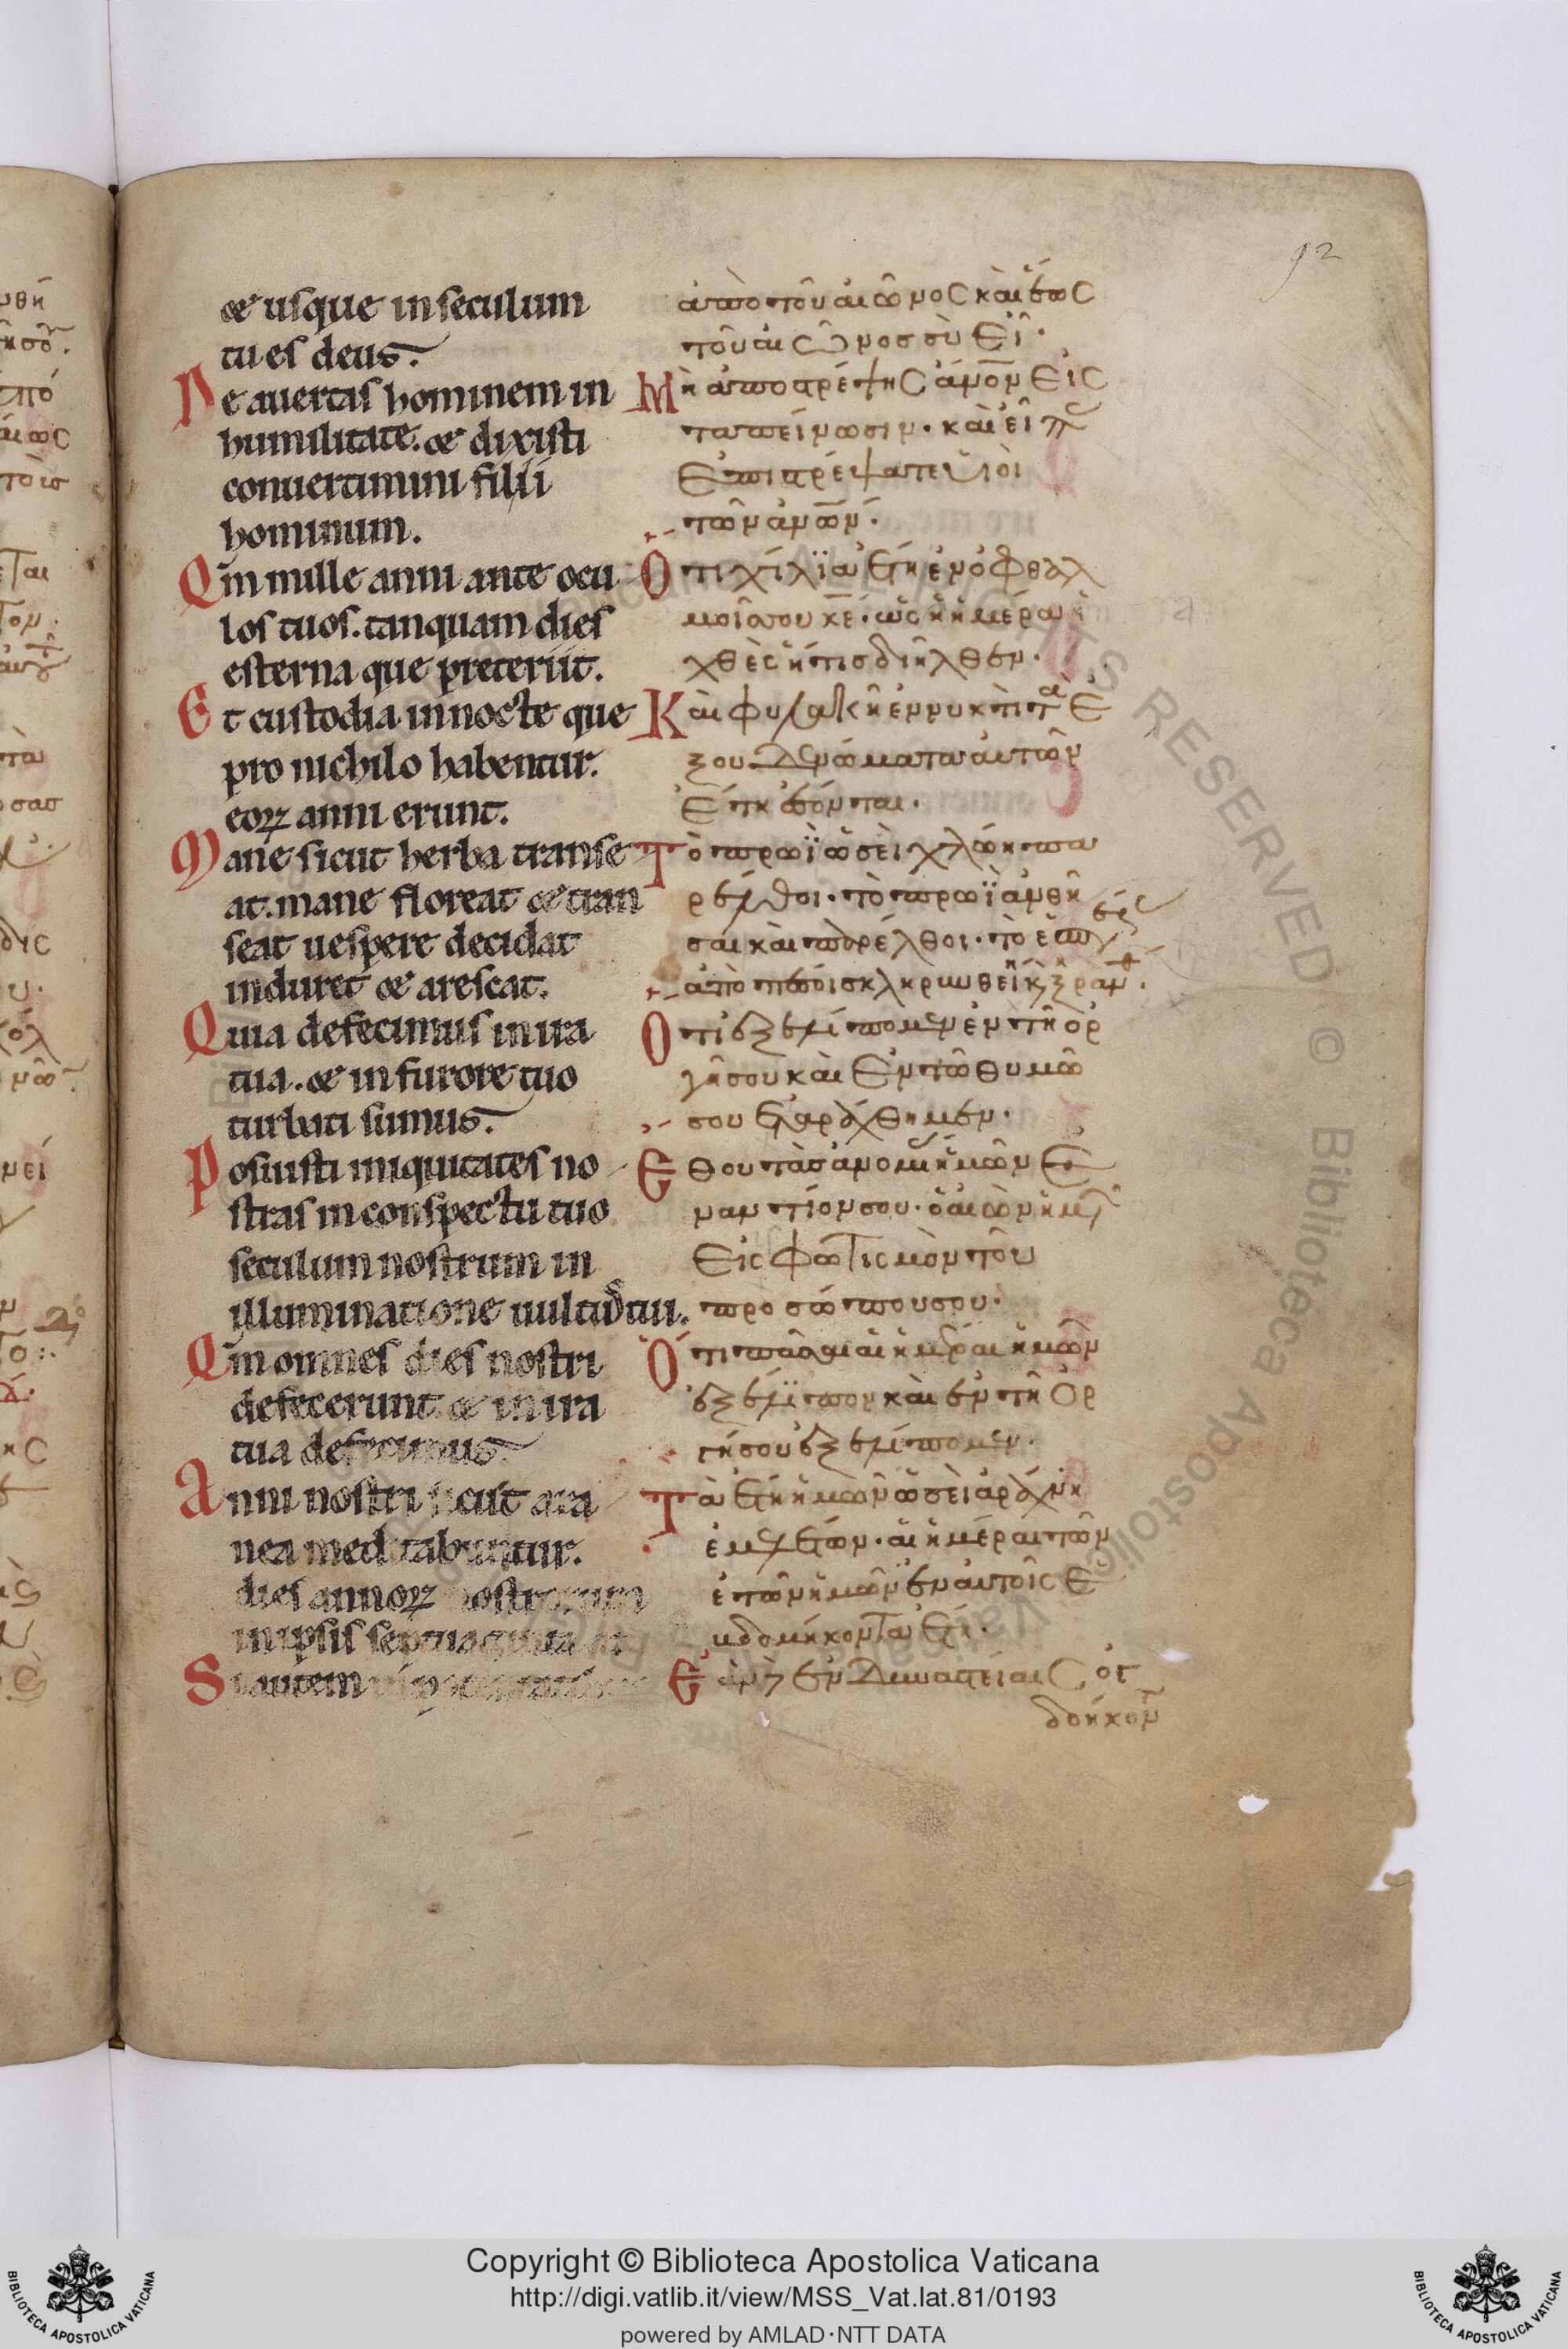 92
& usque in seculum
tu es deus.
Ne auertas hominem in
humilitate. & dixisti
conuertimini filii
hominum.
Qm̄ mille anni ante ocu
los tuos. tanquam dies
esterna que preteriit.
Et custodia in nocte que
pro nichilo habentur.
eoꝝ anni erunt.
Mane sicut herba transe
at. mane floreat & tran
seat uespere decidat
induret & arescat.
Quia defecimus in ira
tua. & in furore tuo
turbati sumus.
Posuisti iniquitates no
stras in conspectu tuo
seculum nostrum in
illuminatione uultus tui.
Qm̄ omnes dies nostri
defecerunt & in ira
tua defecimus.
Anni nostri sicut ara
nea meditabuntur.
dies annoꝝ nostrorum
in ipsis septuaginta
Si autem in
ἀπὸ τοῦ αἰῶνος καὶ ἕως
τοῦ αἰῶνος σὺ εἶ.
Μὴ ἀποστρέψης ἄν̅ον εἰς
ταπείνωσιν. καὶ εἶπας
Ἐπιστρέψατε υἱοὶ
τῶν ἀν̅ων.
Ὅτι χίλϊα ἔτη ἐν ὀφθαλ
μοῖς σου κ̅ε. ὡς ἡ ἡμέρα ἡ
χθὲς ἥτις διῆλθεν.
Καὶ φυλακὴ ἐν νυκτὶ τὰ ἐ
ξουδενώματα αὐτῶν
ἔτη ἔσονται.
Τὸ πρωῒ ὡσεὶ χλόη πα
ρέλθοι. τὸ πρωῒ ἀνθή
σαι καὶ παρέλθοι. τὸ ἑσπέρας
ἀποπέσοι σκληρωθείη κ̀ ξηρανθ.
Ὅτι ἐξελίπομεν ἐν τῆ ὀρ
γῆ σου καὶ ἐν τῶ θυμῶ
σου ἐταράχθημεν.
Ἔθου τὰς ἀνομίας ἡμῶν ἐ
ναντίον σου. ὁ αἰὼν ἡμῶν
εἰς φωτισμὸν τοῦ
προσώπου σου.
Ὅτι πᾶσαι αἱ ἡμέραι ἡμῶν
ἐξέλιπον καὶ ἐν τῆ ὀρ
γῆ σου ἐξελίπομεν.
Τὰ ἔτη ἡμῶν ὡσεὶ ἀράχνη
ἐμελέτων. αἱ ἡμέραι τῶν
ἐτῶν ἡμῶν ἐν αὐτοῖς ἑ
βδομήκοντα ἔτη.
Ἐὰν δὲ ἐν δυναστείαις ὀγ
δοήκοντ
Copyright © Biblioteca Apostolica Vaticana
http://digi.vatlib.it/view/MSS_Vat.lat.81/0193
powered by AMLAD·NTT DATA